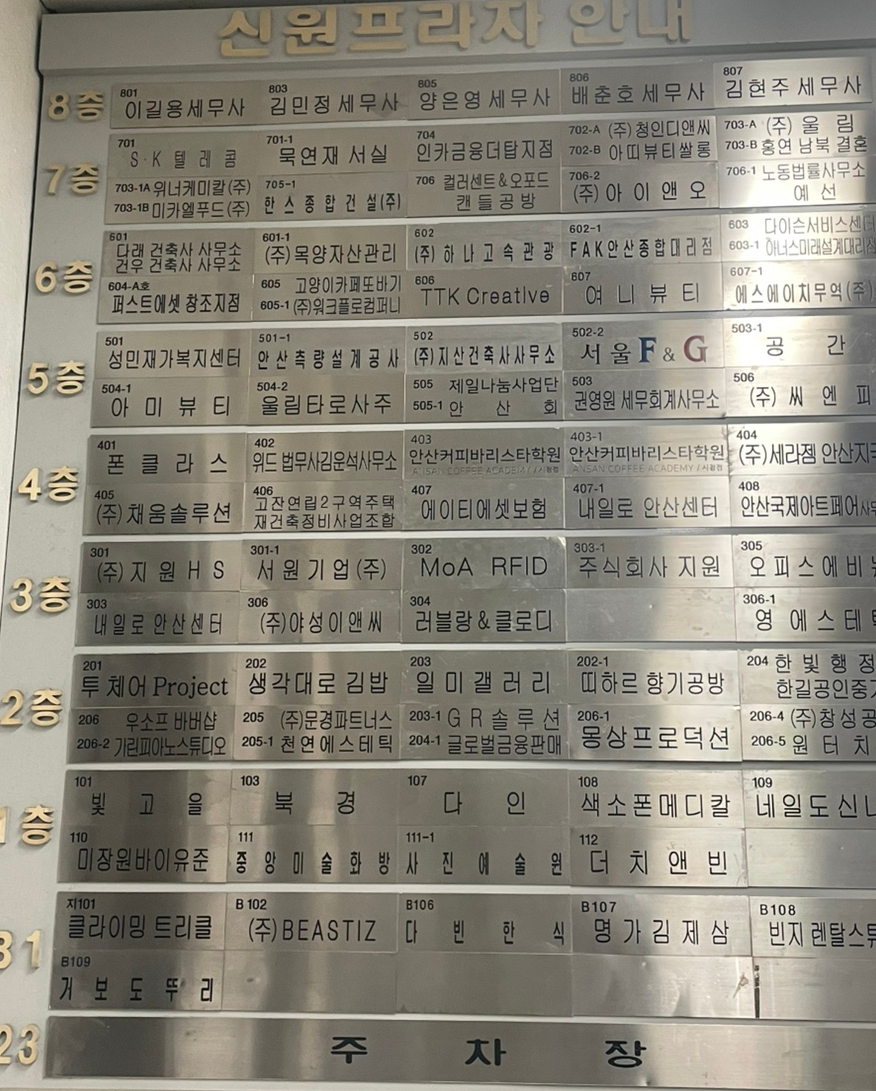 신원프라자 안내
8층
801 이길용세무사
803 김민정 세무사
805 양은영 세무사
806 배춘호 세무사
807 김현주 세무사
7층
701 S·K 텔레콤
701-1 묵연재 서실
704 인카금융더탑지점
702-A (주)청인디앤씨
702-B 아띠뷰티쌀롱
703-A (주) 울 림
703-B 홍연 남북 결혼
703-1A 위너케미칼(주)
703-1B 미카엘푸드(주)
705-1 한스종합건설(주)
706 컬러센트&오포드
캔들공방
706-2 (주)아이앤오
706-1 노동법률사무소
예 선
6층
601 다래 건축사 사무소
건우 건축사 사무소
601-1 (주)목양자산관리
602 (주)하나고속관광
602-1 FAK안산종합대리점
603 다이슨서비스센터
603-1 하너스미래설계대리점
604-A호 퍼스트에셋 창조지점
605 고양이카페또바기
605-1 (주)워크플로컴퍼니
606 TTK Creative
607 여니뷰티
607-1 에스에이치무역(주)
5층
501 성민재가복지센터
501-1 안산측량설계공사
502 (주)지산건축사사무소
502-2 서울F&G
503-1 공 간
504-1 아 미 뷰 티
504-2 울림타로사주
505 제일나눔사업단
505-1 안 산 회
503 권영원 세무회계사무소
506 (주) 씨 엔 피
4층
401 폰 클 라 스
402 위드 법무사김운석사무소
403 안산커피바리스타학원
ANSAN COFFEE ACADEMY
403-1 안산커피바리스타학원
ANSAN COFFEE ACADEMY
404 (주)세라젬 안산지국
405 (주)채움솔루션
406 고잔연립2구역주택
재건축정비사업조합
407 에이티에셋보험
407-1 내일로 안산센터
408 안산국제아트페어
3층
301 (주)지원HS
301-1 서원기업(주)
302 MoA RFID
303-1 주식회사 지원
305 오피스에비뉴
303 내일로 안산센터
306 (주)야성이앤씨
304 러블랑&클로디
306-1 영 에스테틱
2층
201 투 체어 Project
202 생각대로 김밥
203 일미갤러리
202-1 띠하르 향기공방
204 한 빛 행 정
한길공인중개
206 우소프 바버샵
206-2 가린피아노스튜디오
205 (주)문경파트너스
205-1 천연에스테틱
203-1 GR솔루션
204-1 글로벌금융판매
206-1 몽상프로덕션
206-4 (주)창성공
206-5 원 터 치
1층
101 빛 고 을
103 북 경
107 다 인
108 색소폰메디칼
109 네일도신나
110 미장원바이유준
111 중앙미술화방
111-1 사진예술원
112 더 치 앤 빈
B1
지101 클라이밍 트리클
B102 (주)BEASTIZ
B106 다 빈 한 식
B107 명가김제삼
B108 빈지 렌탈스튜
B109 거 보 도 뚜 리
23
주 차 장